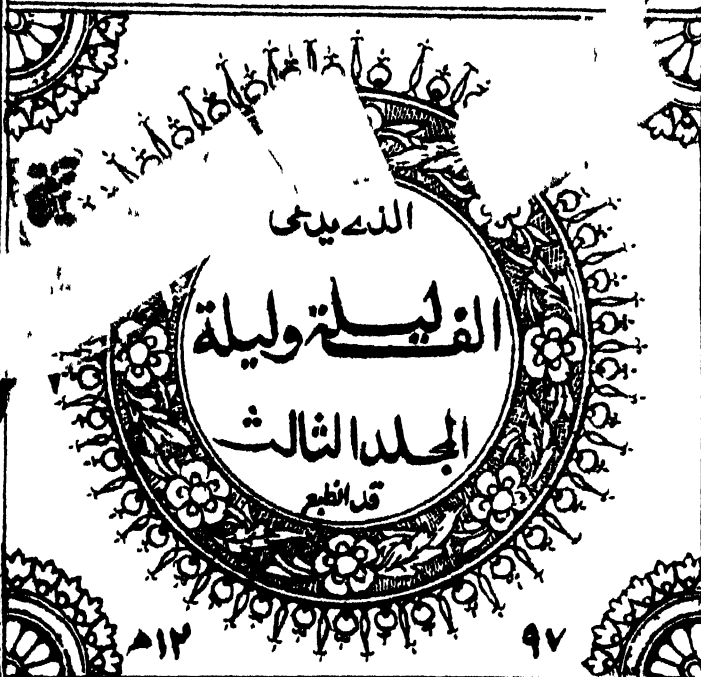 الذے يدعى
الف ليلة وليلة
المجلد الثالث
قد انطبع
١٢ه ٩٧